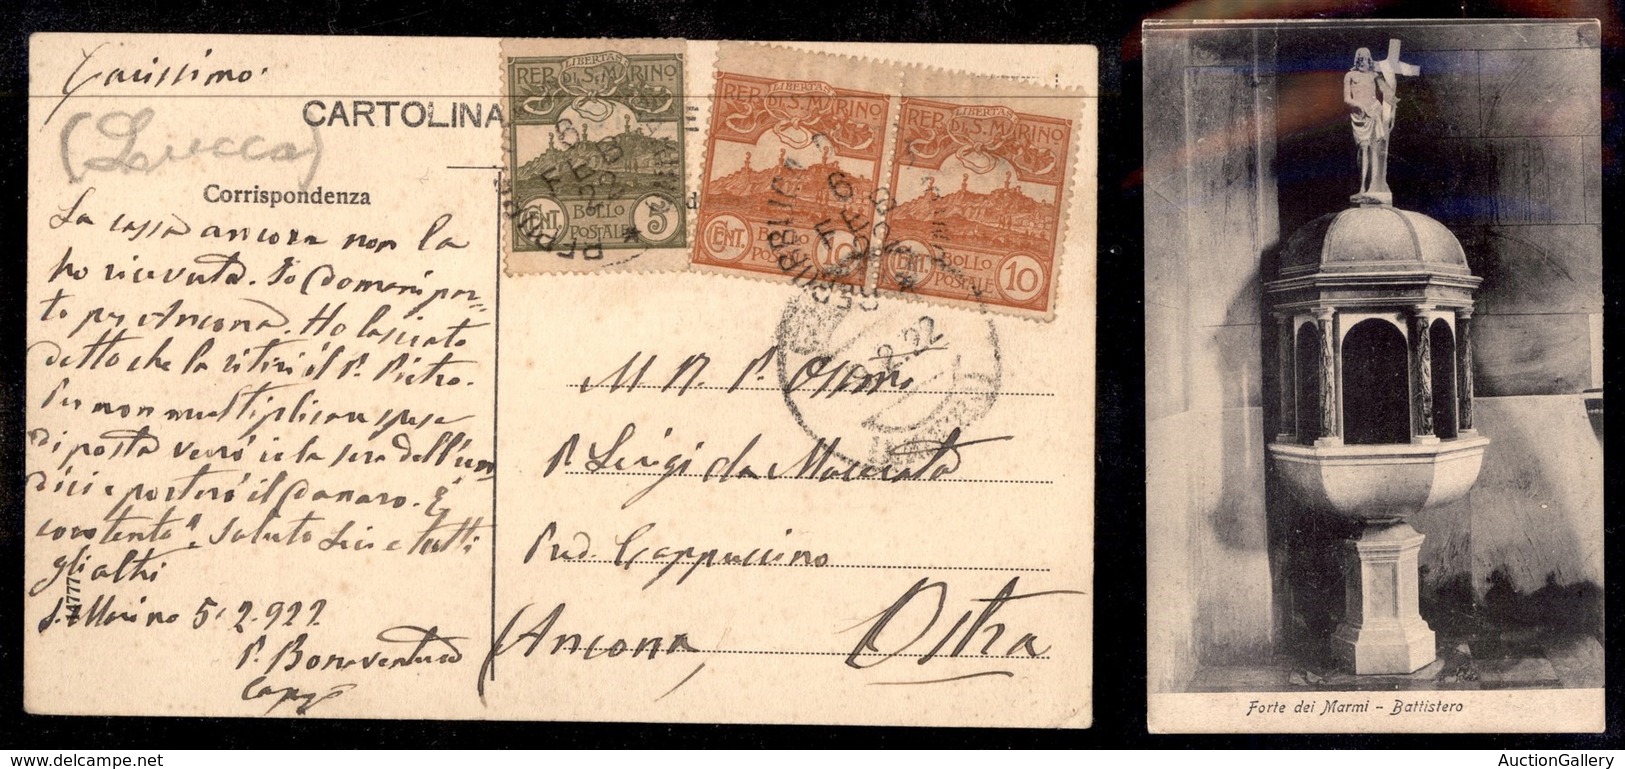 Carissimo.
CARTOLINA
(Lucca)
Corrispondenza
La cassa ancora non la
ho ricevuta. Io domani par-
to per Ancona. Ho lasciato
detto che la ritiri il P. Pietro.
Per non multiplicare spese
di posta verrò io la sera dell'un
dici e porterò il danaro. È
contento? Saluto Lei e tutti
gli altri
S. Marino 5.2.922
P. Bonaventura
Capp
14777
LIBERTAS
REP. DI S. MARINO
CENT. BOLLO POSTALE 5
LIBERTAS
REP. DI S. MARINO
CENT. BOLLO POSTALE 10
LIBERTAS
REP. DI S. MARINO
CENT. BOLLO POSTALE 10
6 FEB 22
6 FEB 22
2.22
M. R. P.
P. Luigi da Macerata
Pred. Cappuccino
(Ancona) Ostra
Forte dei Marmi - Battistero
AuctionGallery